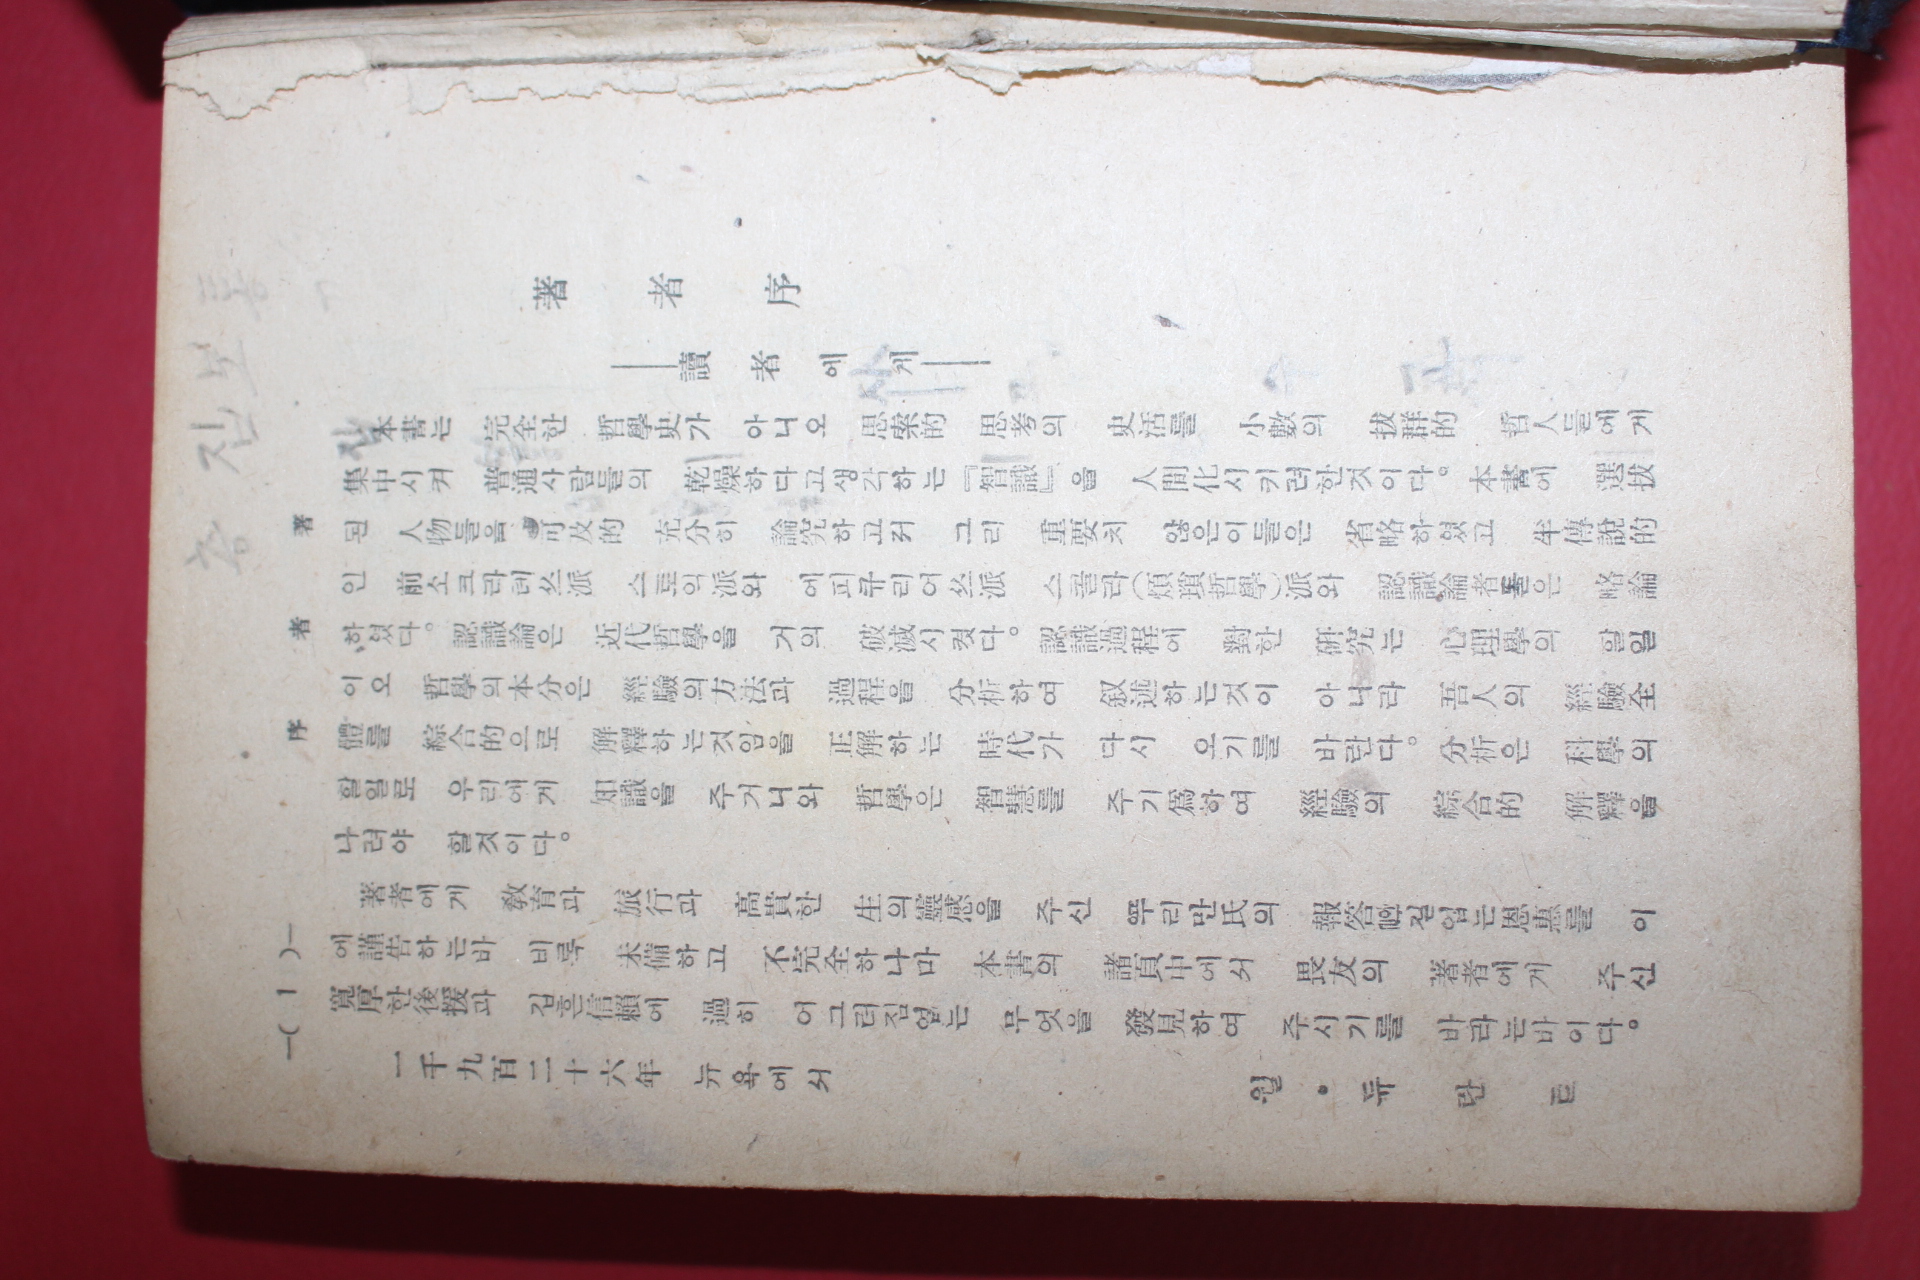 著者序
讀者에게
本書는 完全한 哲學史가 아니오 思索的 思考의 史活를 小數의 拔群的 哲人들에게
集中시커 普通사람들의 乾燥하다고생각하는『智識』을 人間化시키려한것이다。本書에 選拔
된 人物들을 可及的 充分히 論究하고저 그리 重要치 않은이들은 省略하엿고 半傳說的
인 前소크라테쓰派 스토익派와 에피큐리어쓰派 스콜라(煩瑣哲學)派와 認識論者들은 略論
하엿다。認識論은 近代哲學을 거의 破滅시켯다。認識過程에 對한 硏究는 心理學의 할일
이오 哲學의本分은 經驗의方法과 過程을 分析하여 叙述하는것이 아니라 吾人의 經驗全
體를 綜合的으로 解釋하는것임을 正解하는 時代가 다시 오기를 바란다。分析은 科學의
할일로 우리에게 知識을 주거니와 哲學은 智慧를 주기爲하여 經驗의 綜合的 解釋을
나려야 할것이다。
著者에게 敎育과 旅行과 高貴한 生의靈感을 주신 뿌리만氏의 報答할길업는恩惠를 이
에謹告하는바 비록 未備하고 不完全하나마 本書의 諸頁中에서 畏友의 著者에게 주신
寬厚한後援과 깁흔信賴에 過히 어그러짐업는 무엇을 發見하여 주시기를 바라는바이다。
一千九百二十六年 뉴욕에서
윌・듀란트
著者序
—( 1 )—